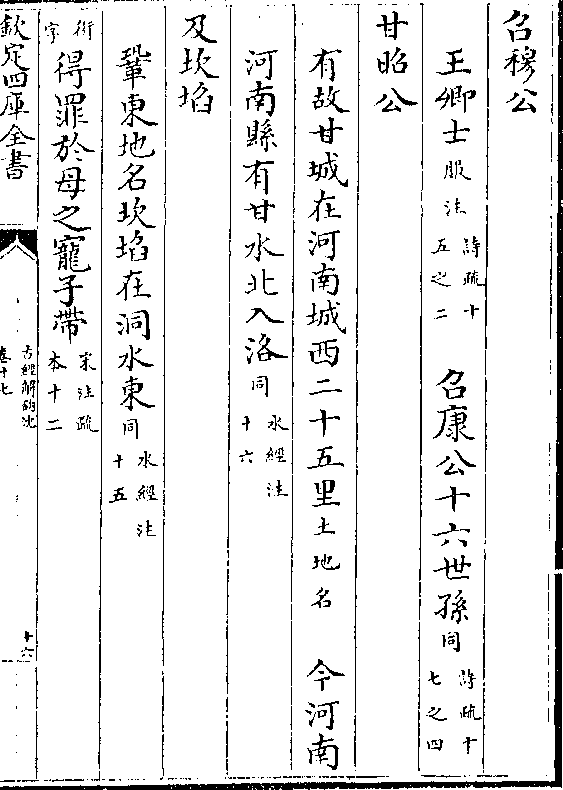 召穆公
王卿士服注詩疏十五之二　召康公十六世孫同詩疏十七之四
甘昭公
有故甘城在河南城西二十五里土地名　今河南
河南縣有甘水北入洛同水經注十六
及坎埳
鞏東地名坎埳在洞水東同水經注十五
衍字得罪於母之寵子帶宋注疏本十二
欽定四庫全書
古經解鉤沈
卷十七
十六